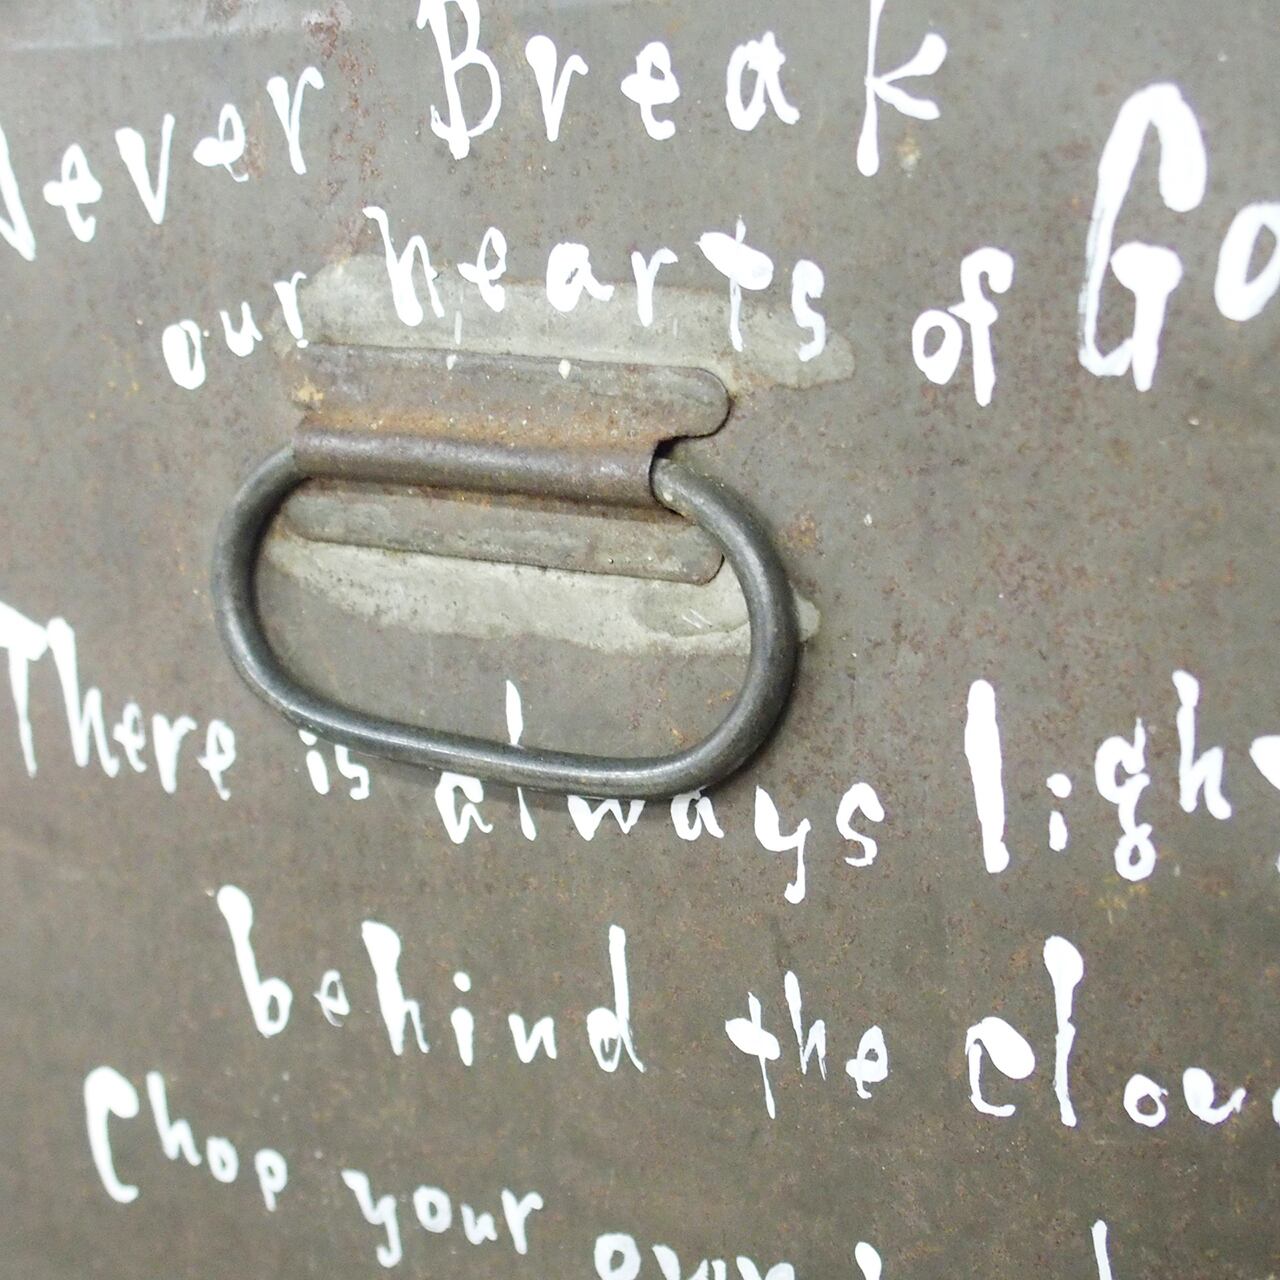 Never Break
our hearts of Go
There is always light
behind the clou
Chop your own